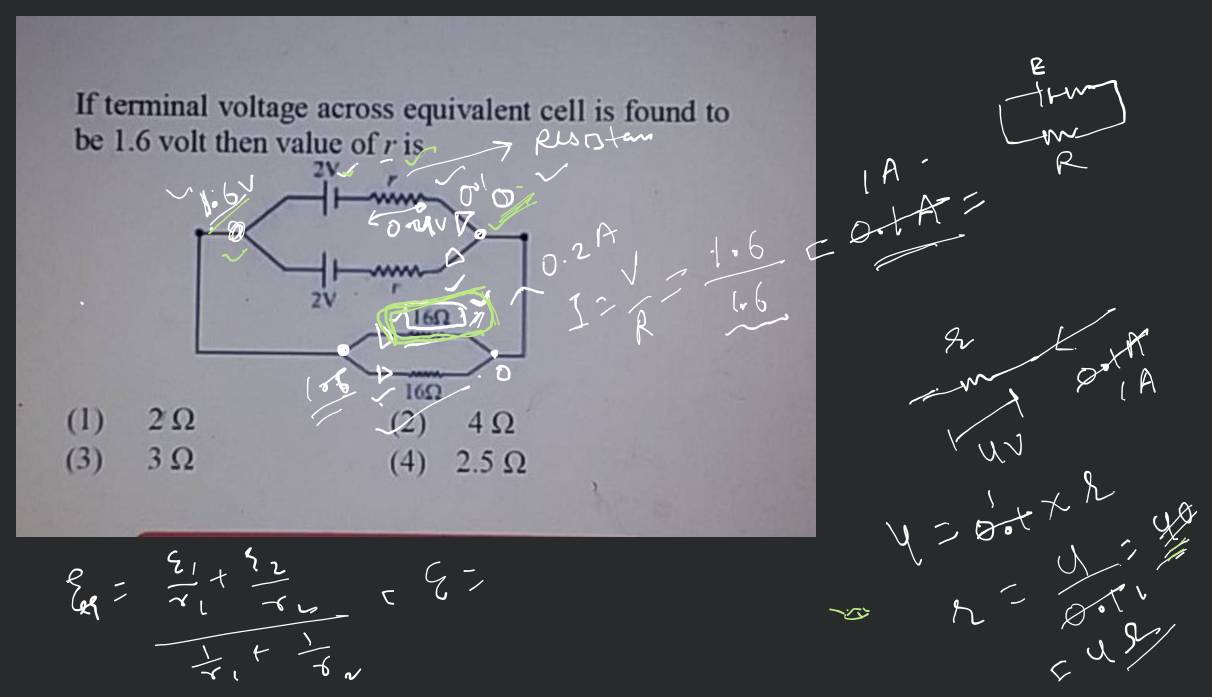 If terminal voltage across equivalent cell is found to
be 1.6 volt then value of r is
Resistan
2V
r
1.6V
0
2V
r
16Ω
16Ω
0
(1) 2 Ω
(2) 4 Ω
(3) 3 Ω
(4) 2.5 Ω
E
R
1A
0.1A =
0.2A
I = V/R = 1.6/1.6 =
r
0.1A
1A
4V
4 = 0.1 × r
1
r = 4/0.1 = 40
= 4Ω
ξeq = ξ1/r1 + ξ2/r2
1/r1 + 1/r2
ξ =